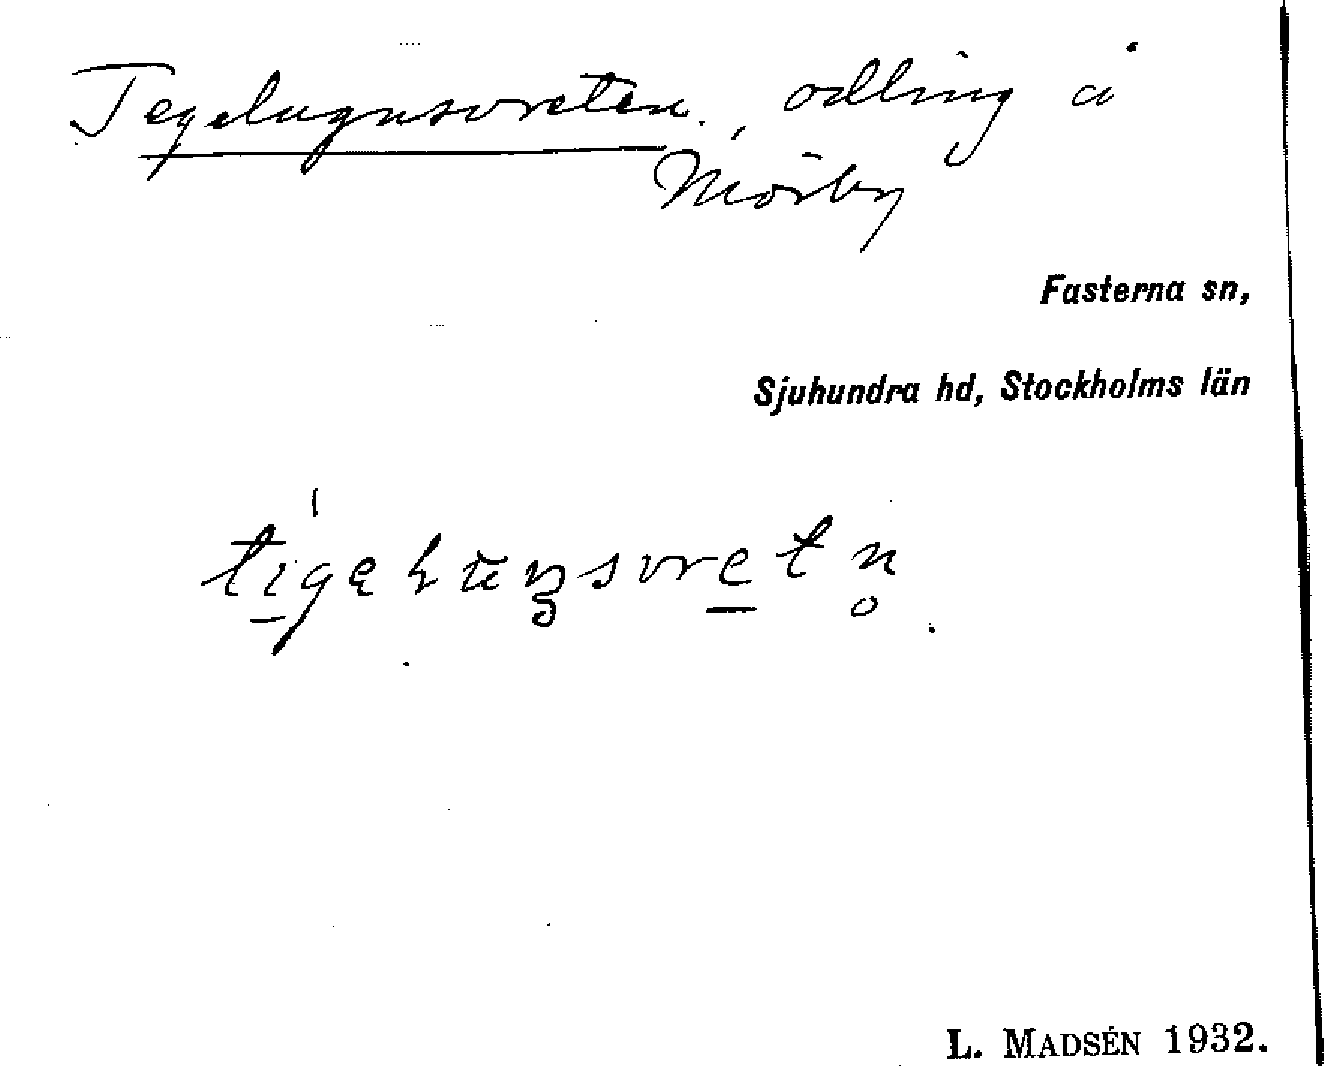 Tegelugnsvreten, odling å
Mörby
Fasterna sn,
Sjuhundra hd, Stockholms län
L. MADSÉN 1932.